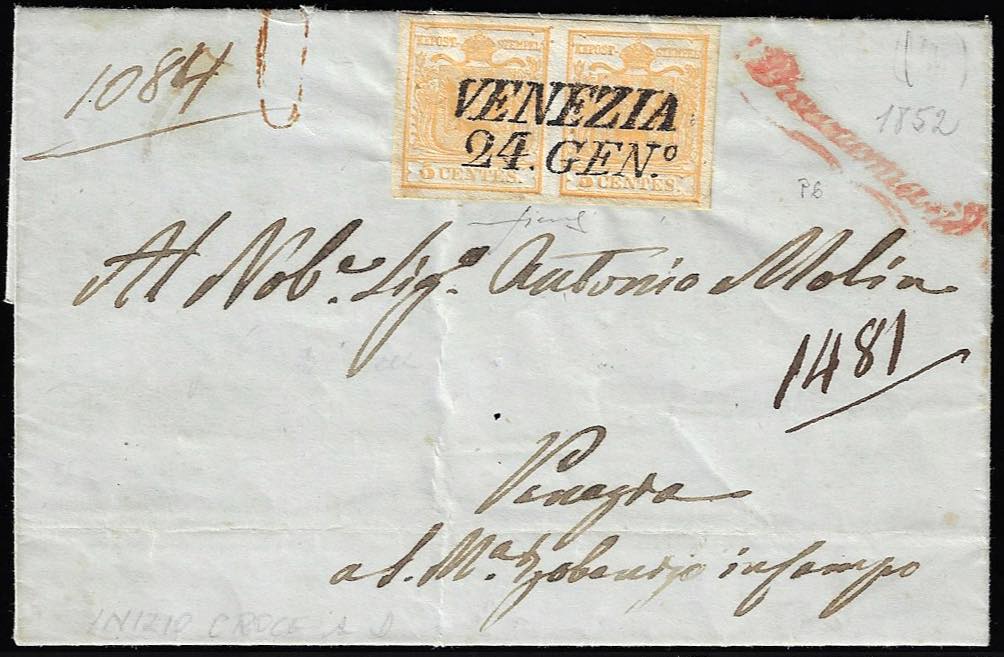 1084
KPOST STEMPEL KPOST STEMPEL
5 CENTES. 5 CENTES.
VENEZIA
24. GEN.º
Raccomandata
1852
P6
Al Nob.e Sig.o Antonio Molin
1481
Venezia
a S. M.a Zobenigo in Campo
INIZIO CROCE A D